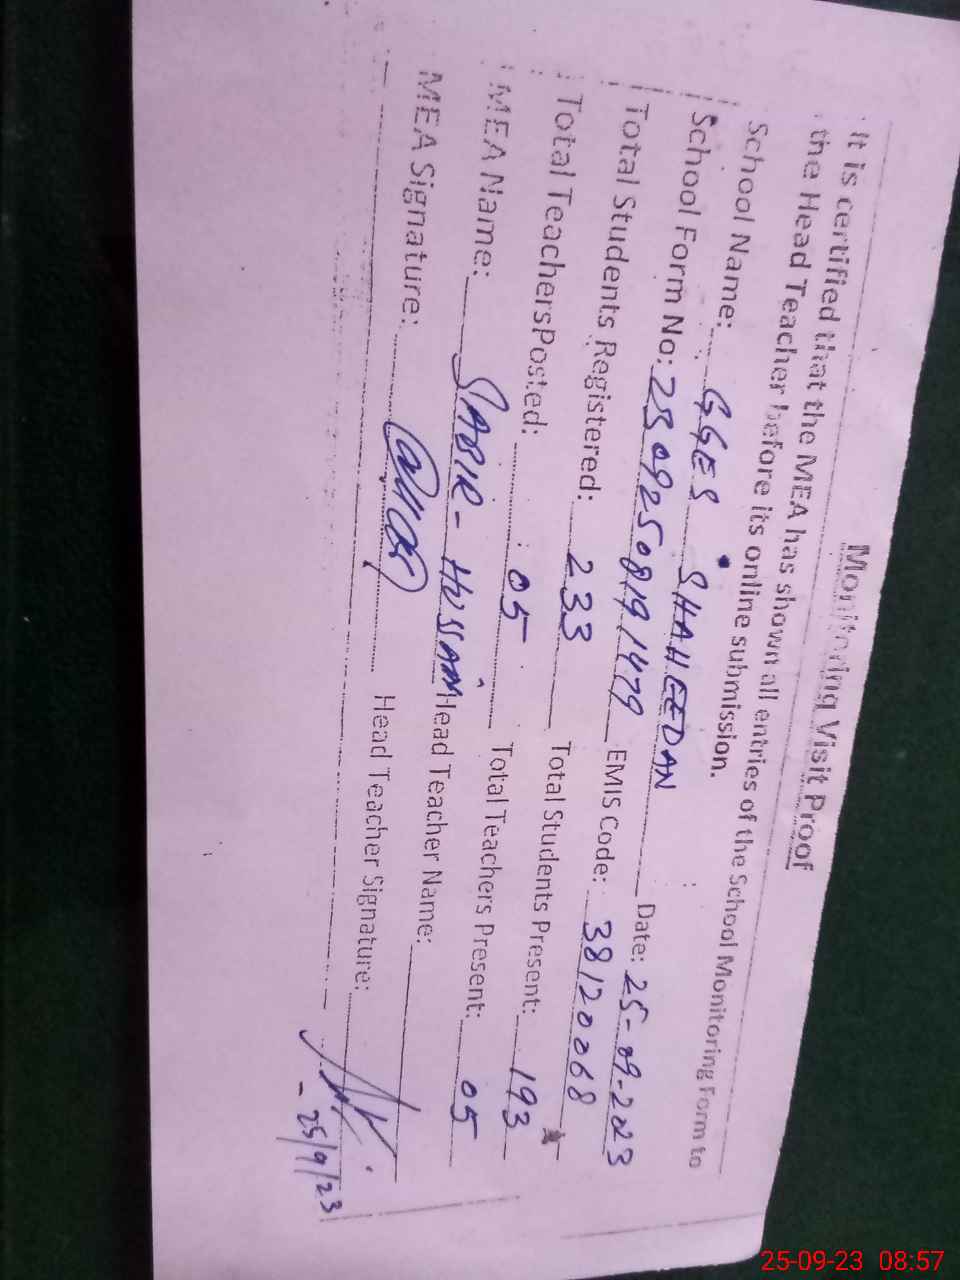 Monitoring Visit Proof
It is certified that the MEA has shown all entries of the School Monitoring Form to
the Head Teacher before its online submission.
School Name: GGES SHAHEEDAN Date: 25-09-2023
School Form No: 23092508191479 EMIS Code: 38120068
Total Students Registered: 233 Total Students Present: 193
Total TeachersPosted: 05 Total Teachers Present: 05
MEA Name: SABIR-HUSSAIN Head Teacher Name:
MEA Signature: Head Teacher Signature:
25/9/23
25-09-23 08:57